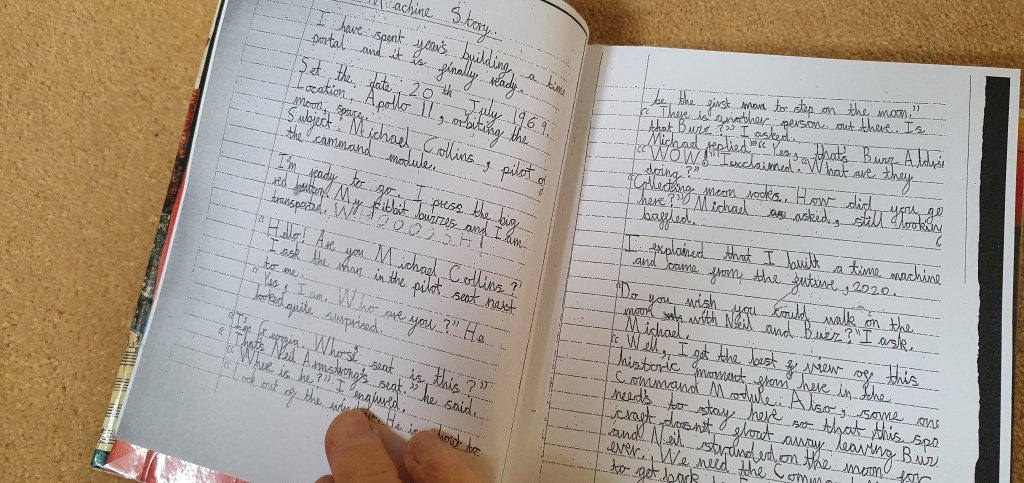 Machine Story.
I have spent years building a time
portal and it is finally ready.
Set the date 20th July 1969.
Location: Apollo 11, orbiting the
moon, space.
Subject: Michael Collins, pilot of
the command module.
I'm ready to go. I press the big
red button. My fitbit buzzes and I am
transported. WHOOOOSH!
"Hello! Are you Michael Collins?"
I ask the man in the pilot seat next
to me.
"Yes, I am. Who are you?" He
looked quite surprised.
"I'm Georgia. Whose seat is this?"
"Thats Neil Armstrong's seat," he said.
"Where is he?" I enquired.
"Look out of the He is to
be the first man to step on the moon."
"There is another person out there. Is
that Buzz?" I asked.
Michael replied "Yes, that's Buzz
"WOW!" I exclaimed. "What are they
doing?"
"Collecting moon rocks. How did you
here?" Michael asked, still looking
baffled.
I explained that I built a time machine
and came from the future, 2020.
"Do you wish you could walk on the
moon with Neil and Buzz?" I ask,
Michael.
"Well, I get the best view of this
historic moment from here in the
Command Module. Also, some one
needs to stay here so that this
craft doesn't float away leaving
and Neil stranded on the moon for
ever. We need the
to get back